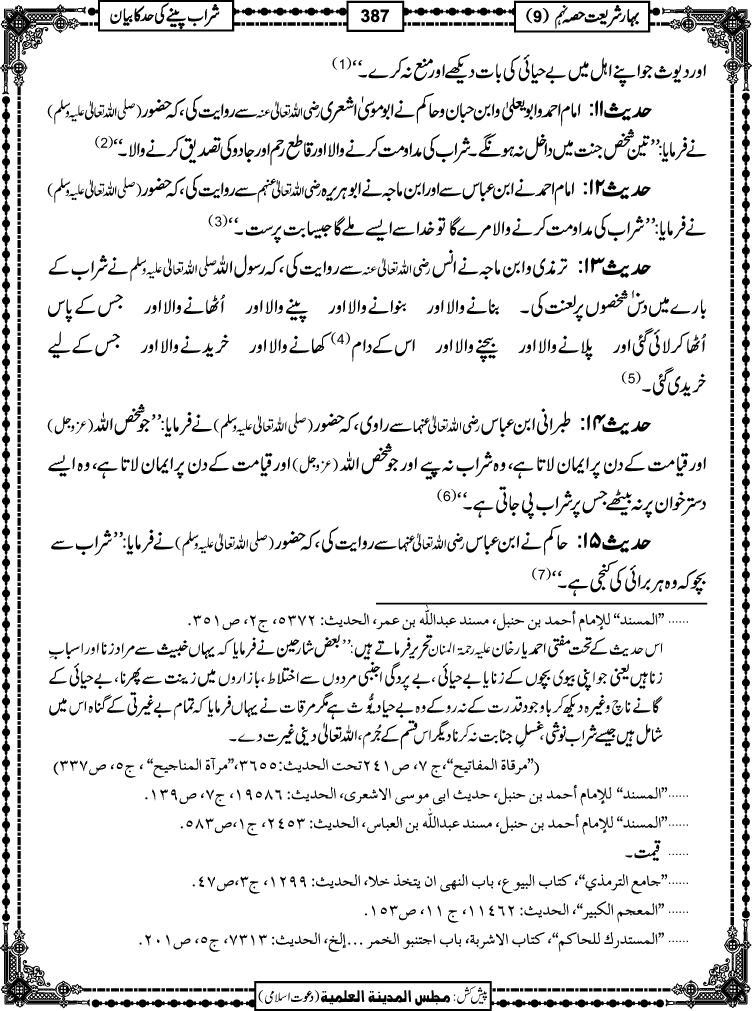 بہار شریعت حصہ نہم (9)
387
شراب پینے کی حد کا بیان
اور دیوث جو اپنے اہل میں بے حیائی کی بات دیکھے اور منع نہ کرے۔‘‘(1)
حدیث ۱۱: امام احمد و ابو یعلیٰ و ابن حبان و حاکم نے ابو موسیٰ اشعری رضی اللہ تعالیٰ عنہ سے روایت کی، کہ حضور (صلی اللہ تعالیٰ علیہ وسلم)
نے فرمایا: ’’تین شخص جنت میں داخل نہ ہونگے۔ شراب کی مداومت کرنے والا اور قاطع رحم اور جادو کی تصدیق کرنے والا۔‘‘(2)
حدیث ۱۲: امام احمد نے ابن عباس سے اور ابن ماجہ نے ابو ہریرہ رضی اللہ تعالیٰ عنہم سے روایت کی، کہ حضور (صلی اللہ تعالیٰ علیہ وسلم)
نے فرمایا: ’’شراب کی مداومت کرنے والا مرے گا تو خدا سے ایسے ملے گا جیسا بت پرست۔‘‘(3)
حدیث ۱۳: ترمذی و ابن ماجہ نے انس رضی اللہ تعالیٰ عنہ سے روایت کی، کہ رسول اللہ صلی اللہ تعالیٰ علیہ وسلم نے شراب کے
بارے میں دس شخصوں پر لعنت کی۔ بنانے والا اور بنوانے والا اور پینے والا اور اُٹھانے والا اور جس کے پاس
اُٹھا کر لائی گئی اور پلانے والا اور بیچنے والا اور اس کے دام(4) کھانے والا اور خریدنے والا اور جس کے لیے
خریدی گئی۔(5)
حدیث ۱۴: طبرانی ابن عباس رضی اللہ تعالیٰ عنہما سے راوی، کہ حضور (صلی اللہ تعالیٰ علیہ وسلم) نے فرمایا: ’’جو شخص اللہ (عزوجل)
اور قیامت کے دن پر ایمان لاتا ہے، وہ شراب نہ پیے اور جو شخص اللہ (عزوجل) اور قیامت کے دن پر ایمان لاتا ہے، وہ ایسے
دسترخوان پر نہ بیٹھے جس پر شراب پی جاتی ہے۔‘‘(6)
حدیث ۱۵: حاکم نے ابن عباس رضی اللہ تعالیٰ عنہما سے روایت کی، کہ حضور (صلی اللہ تعالیٰ علیہ وسلم) نے فرمایا: ’’شراب سے
بچو کہ وہ ہر برائی کی کنجی ہے۔‘‘(7)
...... ”المسند“ للإمام أحمد بن حنبل، مسند عبداللّٰه بن عمر، الحديث: ٥٣٧٢، ج٢، ص٣٥١.
اس حدیث کے تحت مفتی احمد یار خان علیہ رحمۃ المنان تحریر فرماتے ہیں: ’’بعض شارحین نے فرمایا کہ یہاں خبیث سے مراد زنا اور اسبابِ
زنا ہیں یعنی جو اپنی بیوی بچوں کے زنا یا بے حیائی ، بے پردگی اجنبی مردوں سے اختلاط ، بازاروں میں زینت سے پھرنا، بے حیائی کے
گانے ناچ وغیرہ دیکھ کر باوجود قدرت کے نہ روکے وہ بے حیا دیُّوث ہے مگر مرقات نے یہاں فرمایا کہ تمام بے غیرتی کے گناہ اس میں
شامل ہیں جیسے شراب نوشی، غسلِ جنابت نہ کرنا دیگر اس قسم کے جُرم، اللہ تعالیٰ دینی غیرت دے۔
(”مرقاة المفاتيح“، ج ٧، ص٢٤١ تحت الحديث:٣٦٥٥،”مرآة المناجيح“ ، ج٥، ص٣٣٧)
......”المسند“ للإمام أحمد بن حنبل، حديث ابى موسى الاشعرى، الحديث: ١٩٥٨٦، ج٧، ص١٣٩.
......”المسند“ للإمام أحمد بن حنبل، مسند عبداللّٰه بن العباس، الحديث: ٢٤٥٣، ج١،ص٥٨٣.
...... قیمت۔
......”جامع الترمذي“، كتاب البيوع، باب النهى ان يتخذ خلا، الحديث: ١٢٩٩، ج٣،ص٤٧.
...... ”المعجم الكبير“، الحديث: ١١٤٦٢، ج ١١، ص١٥٣.
...... ”المستدرك للحاكم“، كتاب الاشربة، باب اجتنبو الخمر ...إلخ، الحديث: ٧٣١٣، ج٥، ص٢٠١.
پیش کش: مجلس المدينة العلمية (دعوت اسلامی)